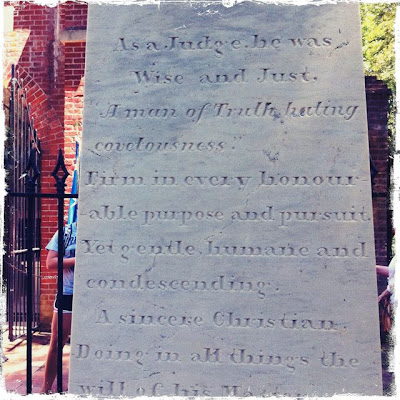 As a Judge, he was
Wise and Just,
"A man of Truth, hating
covetousness."
Firm in every honour-
able purpose and pursuit,
Yet gentle, humane and
condescending.
A sincere Christian,
Doing in all things the
will of his